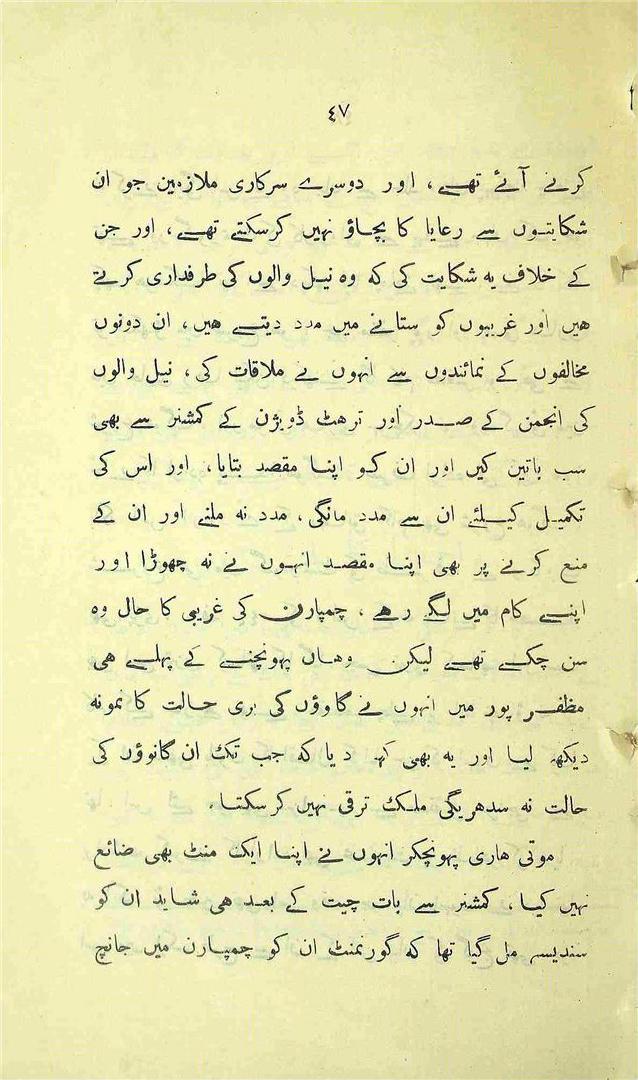 ٤٧
کرنے آئے تھے، اور دوسرے سرکاری ملازمین جو ان
شکایتوں سے رعایا کا بچاؤ نہیں کرسکتے تھے، اور جن
کے خلاف یہ شکایت کی کہ وہ نیل والوں کی طرفداری کرتے
ھیں اور غریبوں کو ستانے میں مدد دیتے ھیں، ان دونوں
مخالفوں کے نمائندوں سے انہوں نے ملاقات کی، نیل والوں
کی انجمن کے صدر اور ترھٹ ڈویژن کے کمشنر سے بھی
سب باتیں کیں اور ان کو اپنا مقصد بتایا، اور اس کی
تکمیل کیلئے ان سے مدد مانگی، مدد نہ ملنے اور ان کے
منع کرنے پر بھی اپنا مقصد انہوں نے نہ چھوڑا اور
اپنے کام میں لگے رھے، چمپارن کی غریبی کا حال وہ
سن چکے تھے لیکن وھاں پہونچنے کے پہلے ھی
مظفر پور میں انہوں نے گاوؤں کی بری حالت کا نمونہ
دیکھ لیا اور یہ بھی کہہ دیا کہ جب تک ان گانوؤں کی
حالت نہ سدھریگی ملک ترقی نہیں کرسکتا۔
موتی ھاری پہونچکر انہوں نے اپنا ایک منٹ بھی ضائع
نہیں کیا، کمشنر سے بات چیت کے بعد ھی شاید ان کو
سندیسہ مل گیا تھا کہ گورنمنٹ ان کو چمپارن میں جانچ